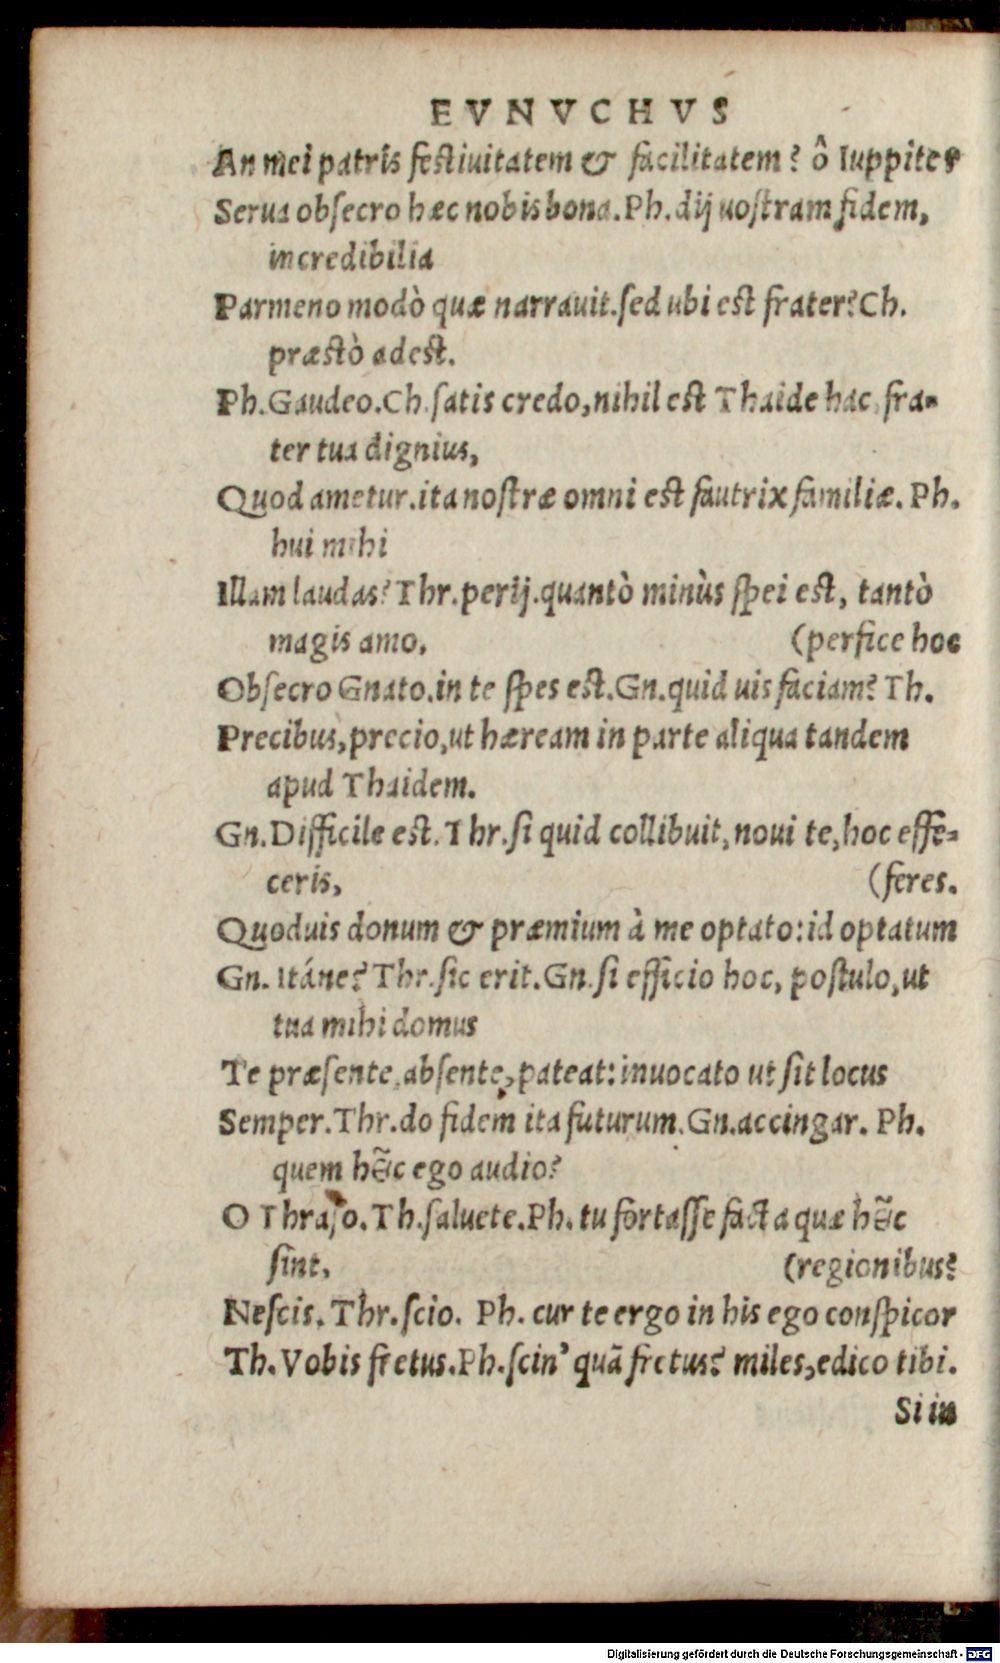 EVNVCHVS
An mei patris festiuitatem & facilitatem? ô Iuppiter
Serua obsecro hæc nobis bona. Ph. dij uostram fidem,
incredibilia
Parmeno modò quæ narrauit. sed ubi est frater? Ch.
præstò adest.
Ph. Gaudeo. Ch. satis credo, nihil est Thaide hac, fra-
ter tua dignius,
Quod ametur. ita nostræ omni est fautrix familiæ. Ph.
hui mihi
Illam laudas? Thr. perij. quantò minùs spei est, tantò
magis amo, (perfice hoc
Obsecro Gnato. in te spes est. Gn. quid uis faciam? Th.
Precibus, precio, ut hæream in parte aliqua tandem
apud Thaidem.
Gn. Difficile est. Thr. si quid collibuit, noui te, hoc effe-
ceris, (feres.
Quoduis donum & præmium à me optato: id optatum
Gn. Itáne? Thr. sic erit. Gn. si efficio hoc, postulo, ut
tua mihi domus
Te præsente, absente, pateat: inuocato ut sit locus
Semper. Thr. do fidem ita futurum. Gn. accingar. Ph.
quem hĕc ego audio?
O Thraso. Th. saluete. Ph. tu fortasse facta quæ hĕc
sint, (regionibus?
Nescis. Thr. scio. Ph. cur te ergo in his ego conspicor
Th. Vobis fretus. Ph. scin' quã fretus? miles, edico tibi.
Si in
Digitalisierung gefördert durch die Deutsche Forschungsgemeinschaft - DFG